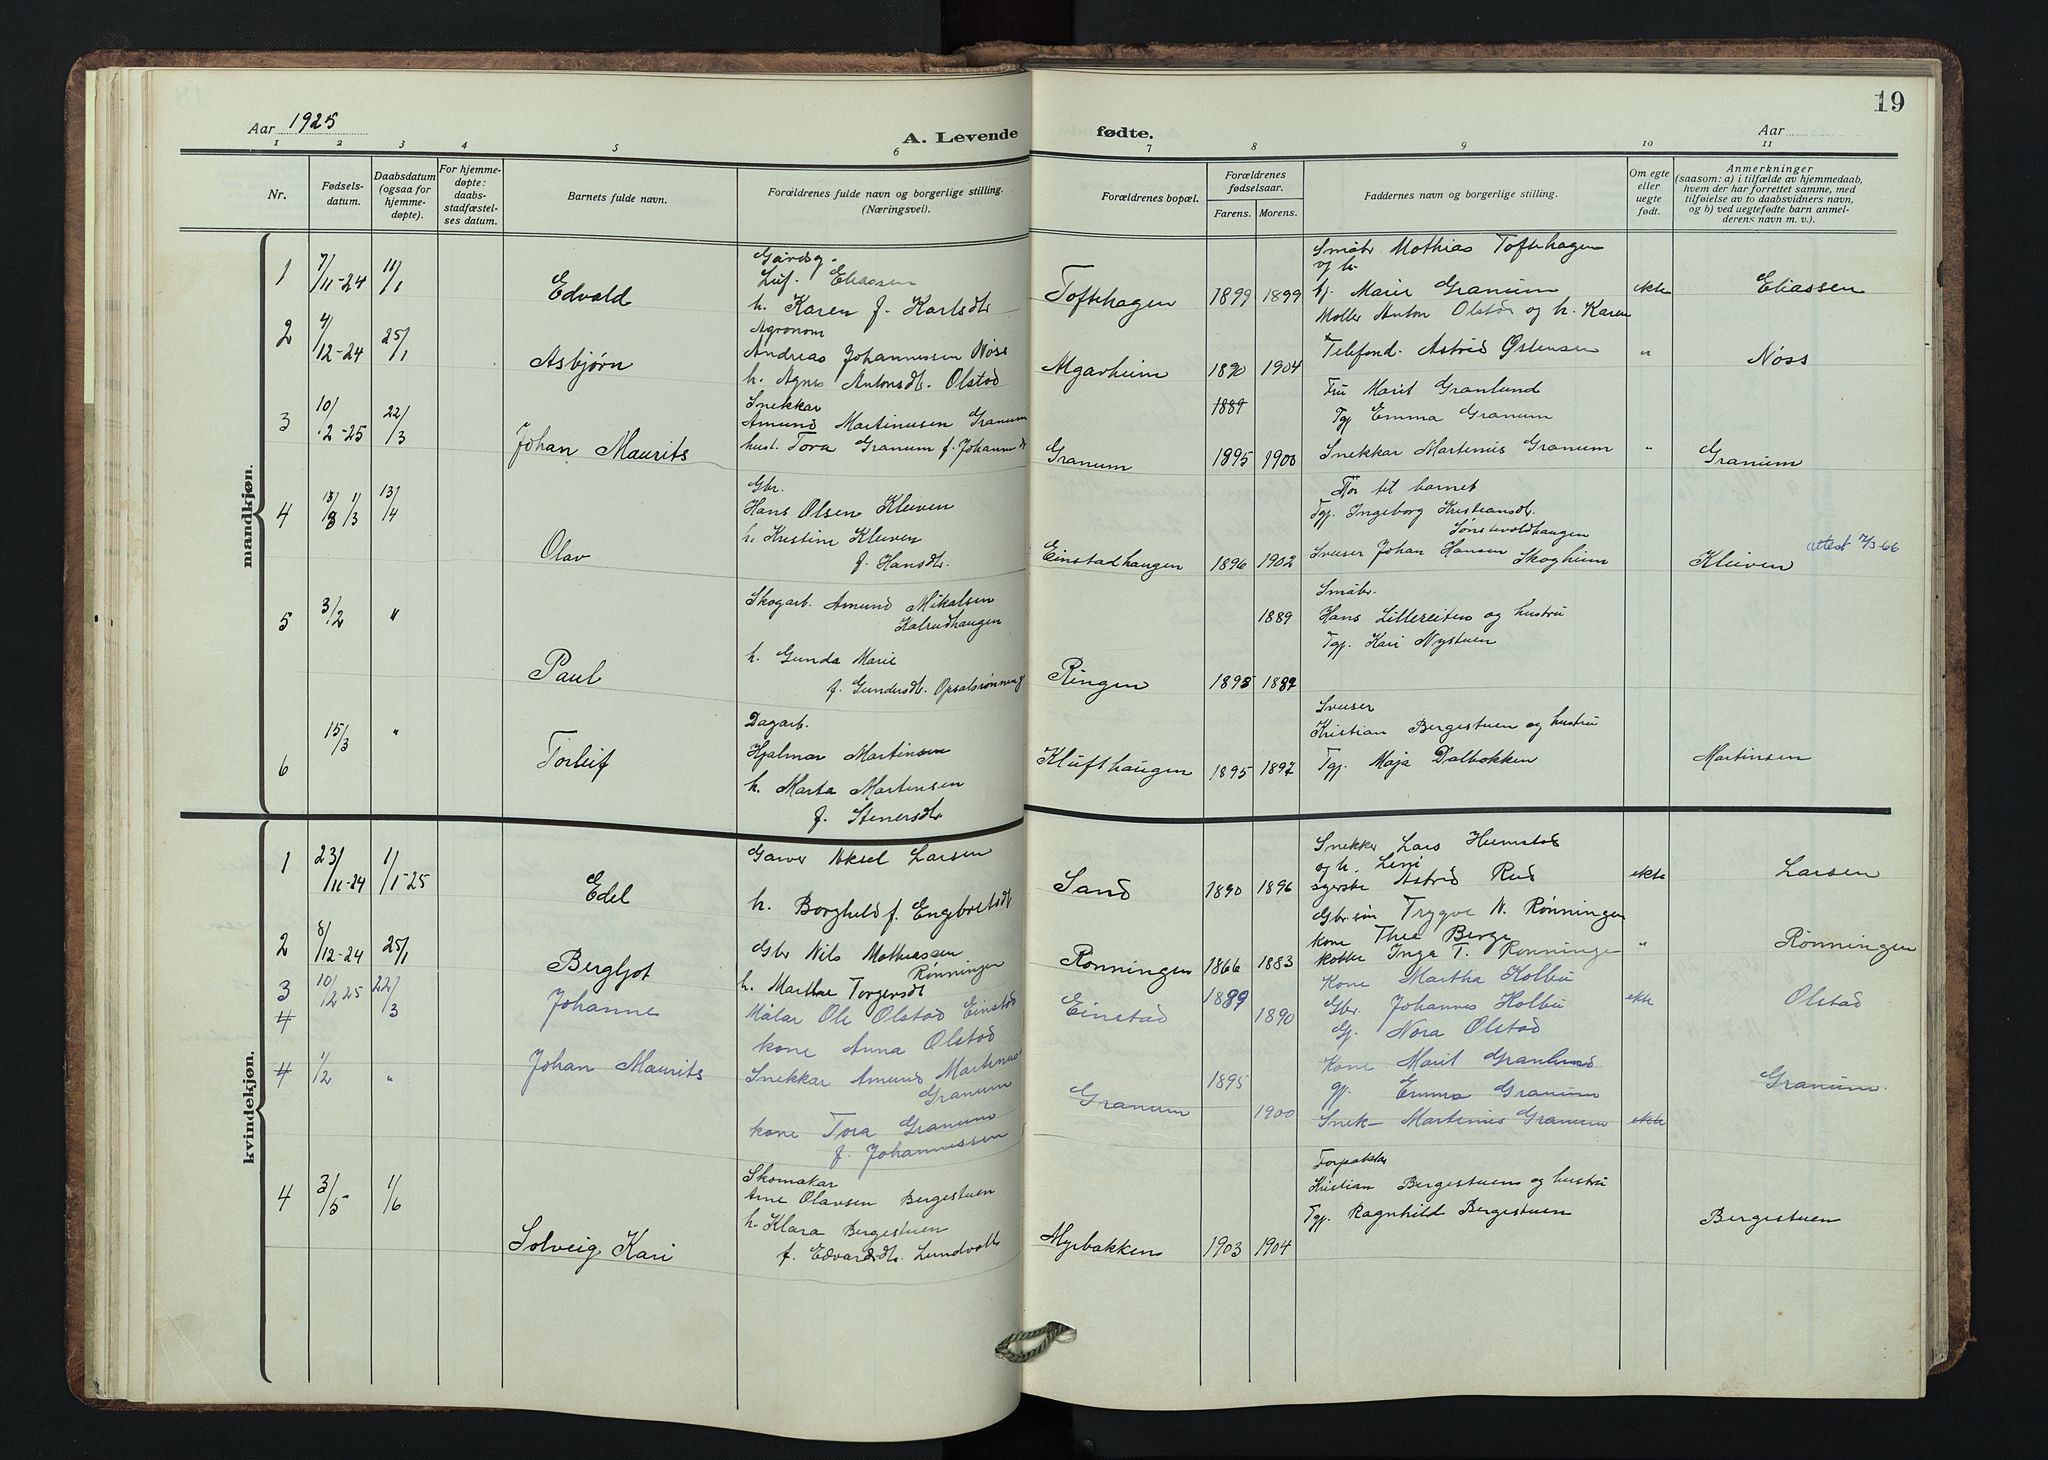 19
Aar 1925
A. Levende fødte.
Aar
1 2 3 4 5 6 7 8 9 10 11
Nr.
Fødsels-
datum.
Daabsdatum
(ogsaa for
hjemme-
døpte).
For hjemme-
døpte:
daabs-
stadfæstel-
ses datum.
Barnets fulde navn.
Forældrenes fulde navn og borgerlige stilling.
(Næringsvei).
Forældrenes bopæl.
Forældrenes
fødselsaar.
Farens. Morens.
Faddernes navn og borgerlige stilling.
Om egte
eller
uegte
født.
Anmerkninger
(saasom: a) i tilfælde av hjemmedaab,
hvem der har forrettet samme, med
tilføielse av to daabsvidners navn,
og b) ved uegtefødte barn anmel-
derens navn m. v.).
mandkjøn.
1 7/11-24 11/1
Edvald
Gårdsg.
Eliassen
h. Karen f. Karlsdtr
Toftehagen 1899 1899
Småbr Mathias Toftehagen
og h.
Marie Granum
ekte
Eliassen
Møller Anton Olstad og h. Karen
2 4/12-24 25/1
Asbjørn
Agronom
Andreas Johannessen Nøss
h. Agnes Antonsdtr. Olstad
Algarheim 1890 1904
Telefond. Astrid Østensen
"
Nøss
3 10/2-25 22/3
Johan Maurits
Snekkar
Amund Martinusen Granum
hust. Tora Granum f. Johannesdt
1889
Granum 1895 1900
Fru Marit Granlund
Tgj Emma Granum
Snekkar Martinus Granum
"
Granum
4 1/3 13/4
Olav
Gbr.
Hans Olsen Kleiven
h. Kristine Kleiven
f. Hansdtr.
Einstadhaugen 1896 1902
Mor til barnet
Tgj. Ingeborg Kristiansdtr.
Sønstevoldhaugen
Sveiser Johan Hansen Skogheim
Kleiven
attest 7/3-66
5 3/2 "
Paul
Skogarb. Amund Mikalsen
Kalrudhaugen
h. Gunda Marie
f. Gundersdt. Opsalrønning
1889
Ringen 1895 1889
Småbr.
Hans Lillereiten og hustru
Tgj. Kari Nystuen
6 15/3 "
Torleif
Dagarb.
Hjalmar Martinsen
h. Marta Martinsen
f. Stenersdtr
Klufthaugen 1895 1897
Sveiser
Kristian Bergestuen og hustru
Tgj. Maja Dalbakken
Martinsen
kvindekjøn.
1 23/11-24 1/1-25
Edel
Garver Aksel Larsen
h. Borghild f. Engebretsdt
Sand 1890 1896
Snekker Lars Heimstad
og h. Lini
syerske Astrid Rud
ekte
Larsen
2 8/12-24 25/1
Bergljot
Gbr Nils Mathiassen
Rønningen
h. Marthe Torgersdt
Rønningen 1866 1883
Gbr.søn Trygve N. Rønningen
kone Thea Berge
Inga T. Rønninge
"
Rønningen
3 10/2 25 22/3
4
Johanne
Målar Ole Olstad Einstad
kone Anna Olstad
Einstad 1889 1890
Kone Martha Holbu
Gbr. Johannes Holbu
Gj. Nora Olstad
ekte
Olstad
4 1/2 "
Johan Maurits
Snekkar Amund Martinus
Granum
kone Tora Granum
f. Johannessen
Granum 1895 1900
Kone Marit Granlund
gj. Emma Granum
Snek- Martinus Granum
ekte
Granum.
4 3/5 1/6
Solveig Kari
Skomakar
Arne Olavsen Bergestuen
h. Klara Bergestuen
f. Edvardsdtr. Lundvall
Myrbakken 1903 1904
Forpakter
Kristian Bergestuen og hustru
Tgj. Ragnhild Bergestuen
Bergestuen